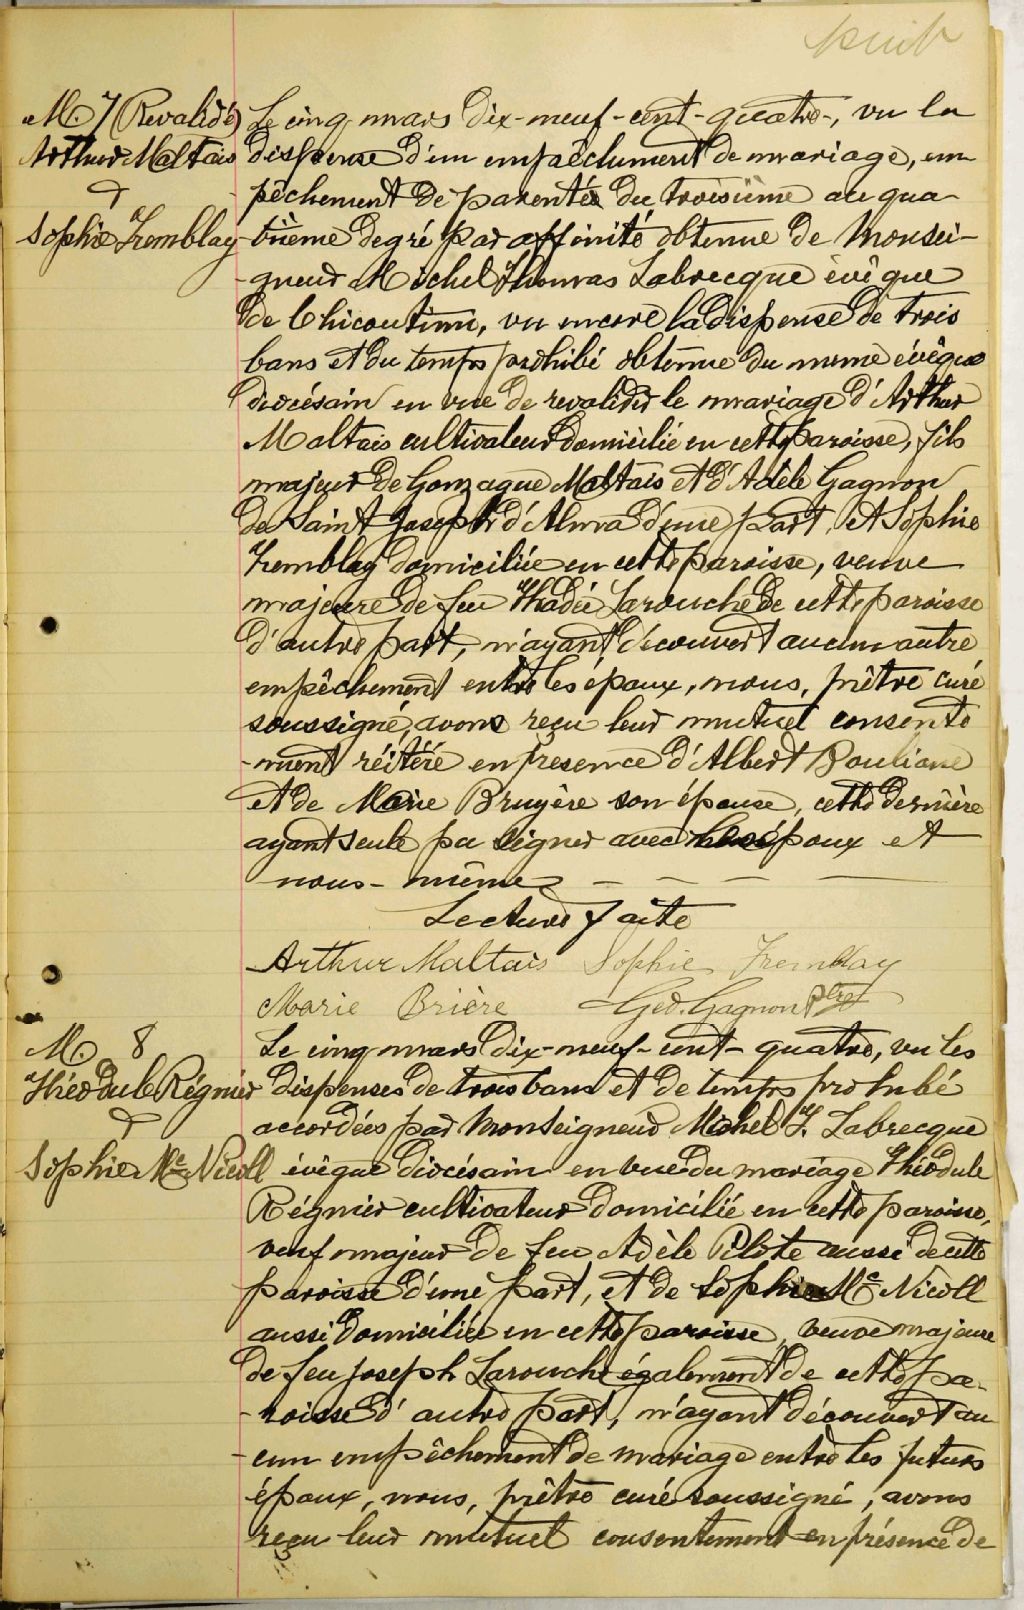 huit
M. 7 (Revalidé)
Arthur Maltais
&
Sophie Tremblay
Le cinq mars dix-neuf-cent-quatre-, vu la
dispense d'un empaêchement de mariage, em
pêchement de parentée du troisième au qua
-trième degré par affinité obtenue de Monsei-
-gneur Michel Thomas Labrecque évêque
de Chicoutimi, vu encore la dispense de trois
bans et du temps prohibé obtenue du même évêque
diocésain en vue de revalider le mariage d'Arthur
Maltais cultivateur domicilié en cette paroisse, fils
majeur de Gonzague Maltais et d'Adèle Gagnon
de Saint Joseph d'Alma d'une part, et Sophie
Tremblay domiciliée en cette paroisse, veuve
majeure de feu Thadée Larouche de cette paroisse
d'autre part, n'ayant découvert aucun autre
empêchement entre les époux, nous, prêtre curé
soussigné, avons reçu leur mutuel consente
-ment réitéré en présence d'Albert Bouliane
et de Marie Bruyère son épouse, cette dernière
ayant seule pu signer avec les époux et
nous-même - - - -
Lecture faite
Arthur Maltais Sophie Tremblay
Marie Brière Géd. Gagnon Ptre
M. 8
Théodule Régnier
&
Sophie Mc Nicoll
Le cinq mars dix-neuf-cent-quatre, vu les
dispenses de trois bans et de temps prohibé
accordées par Monseigneur Michel T. Labrecque
évêque diocésain en vue du mariage Théodule
Régnier cultivateur domicilié en cette paroisse,
veuf majeur de feu Adèle Pilote aussi de cette
paroisse d'une part, et de Sophie Mc Nicoll
aussi domiciliée en cette paroisse, veuve majeure
de feu Joseph Larouche également de cette pa-
-roisse d'autre part, n'ayant découvert au
-cun empêchement de mariage entre les futurs
époux, nous, prêtre curé soussigné, avons
reçu leur mutuel consentement en présence de